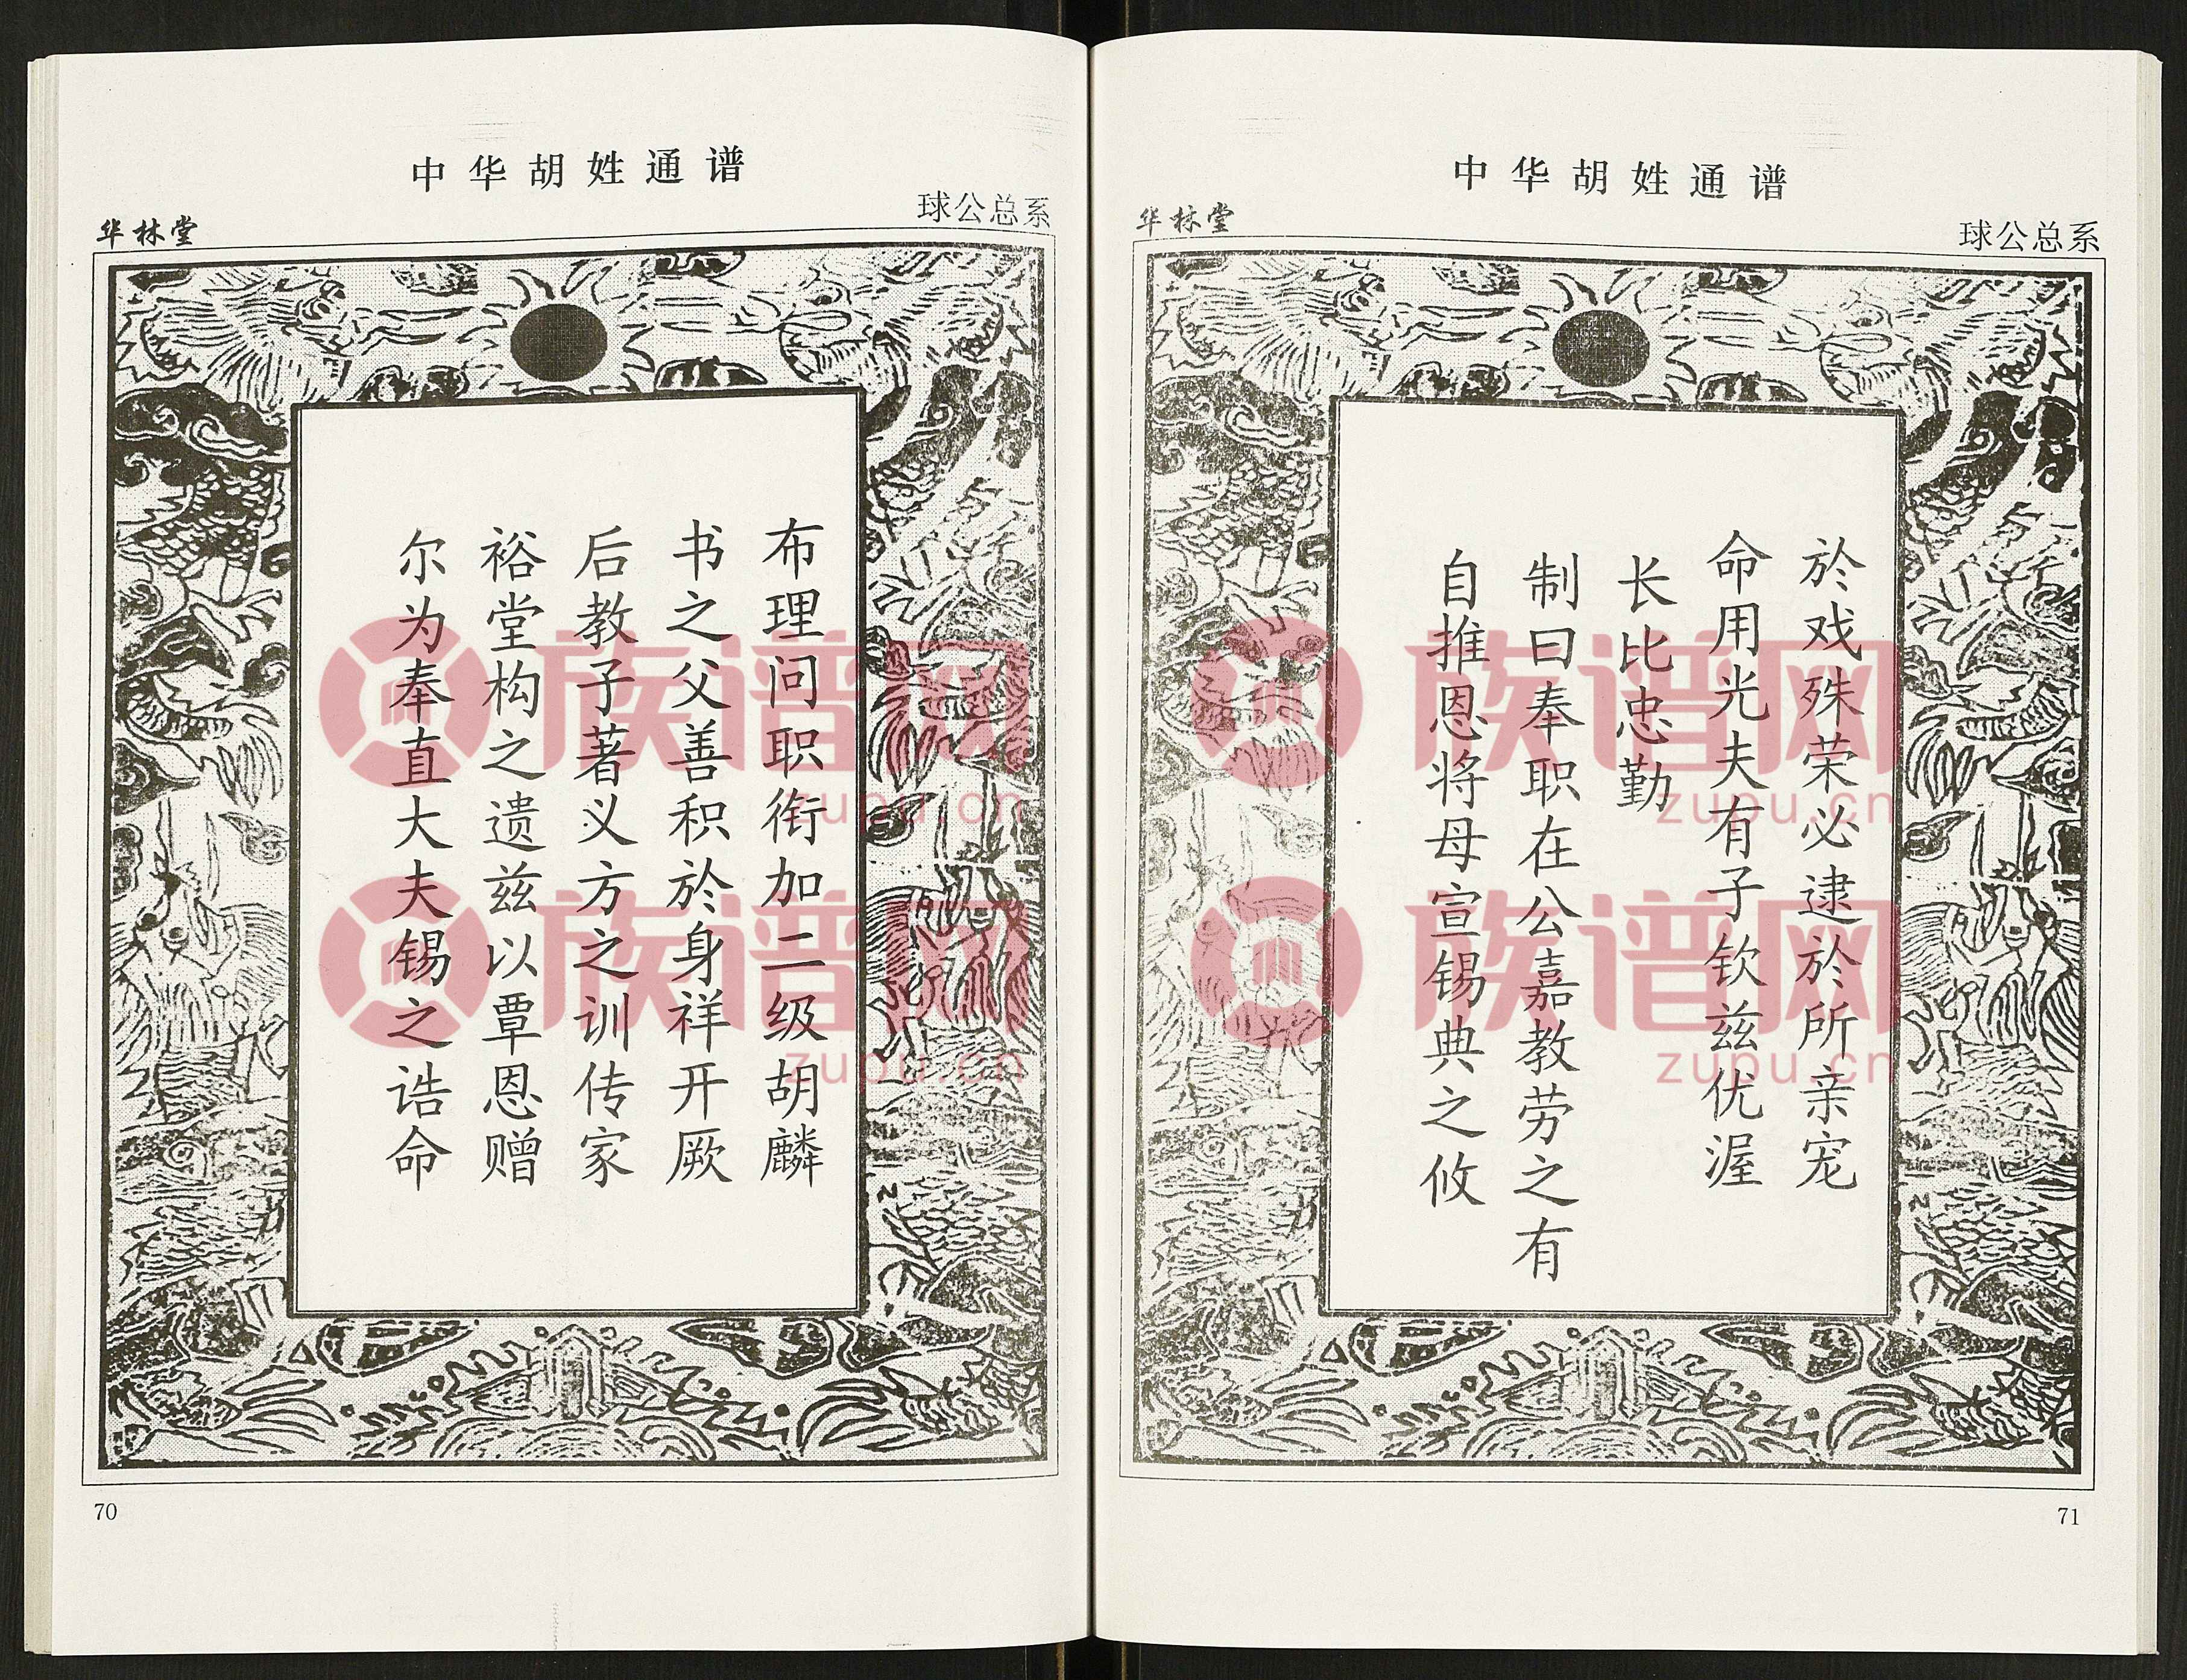 中华胡姓通谱
球公总系
华林堂
布理问职衔加二级胡麟
书之父善积於身祥开厥
后教子著义方之训传家
裕堂构之遗兹以覃恩赠
尔为奉直大夫锡之诰命
70
中华胡姓通谱
球公总系
华林堂
於戏殊荣必逮於所亲宠
命用光夫有子钦兹优渥
长比忠勤
制曰奉职在公嘉教劳之有
自推恩将母宣锡典之攸
71
族谱网
zupu.cn
族谱网
zupu.cn
族谱网
zupu.cn
族谱网
zupu.cn